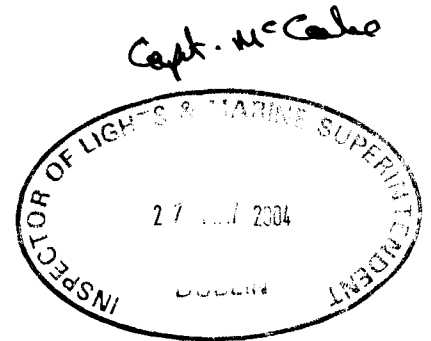 Capt. McCabe
INSPECTOR OF LIGHTS & MARINE SUPERINTENDENT
27 2004
DUBLIN